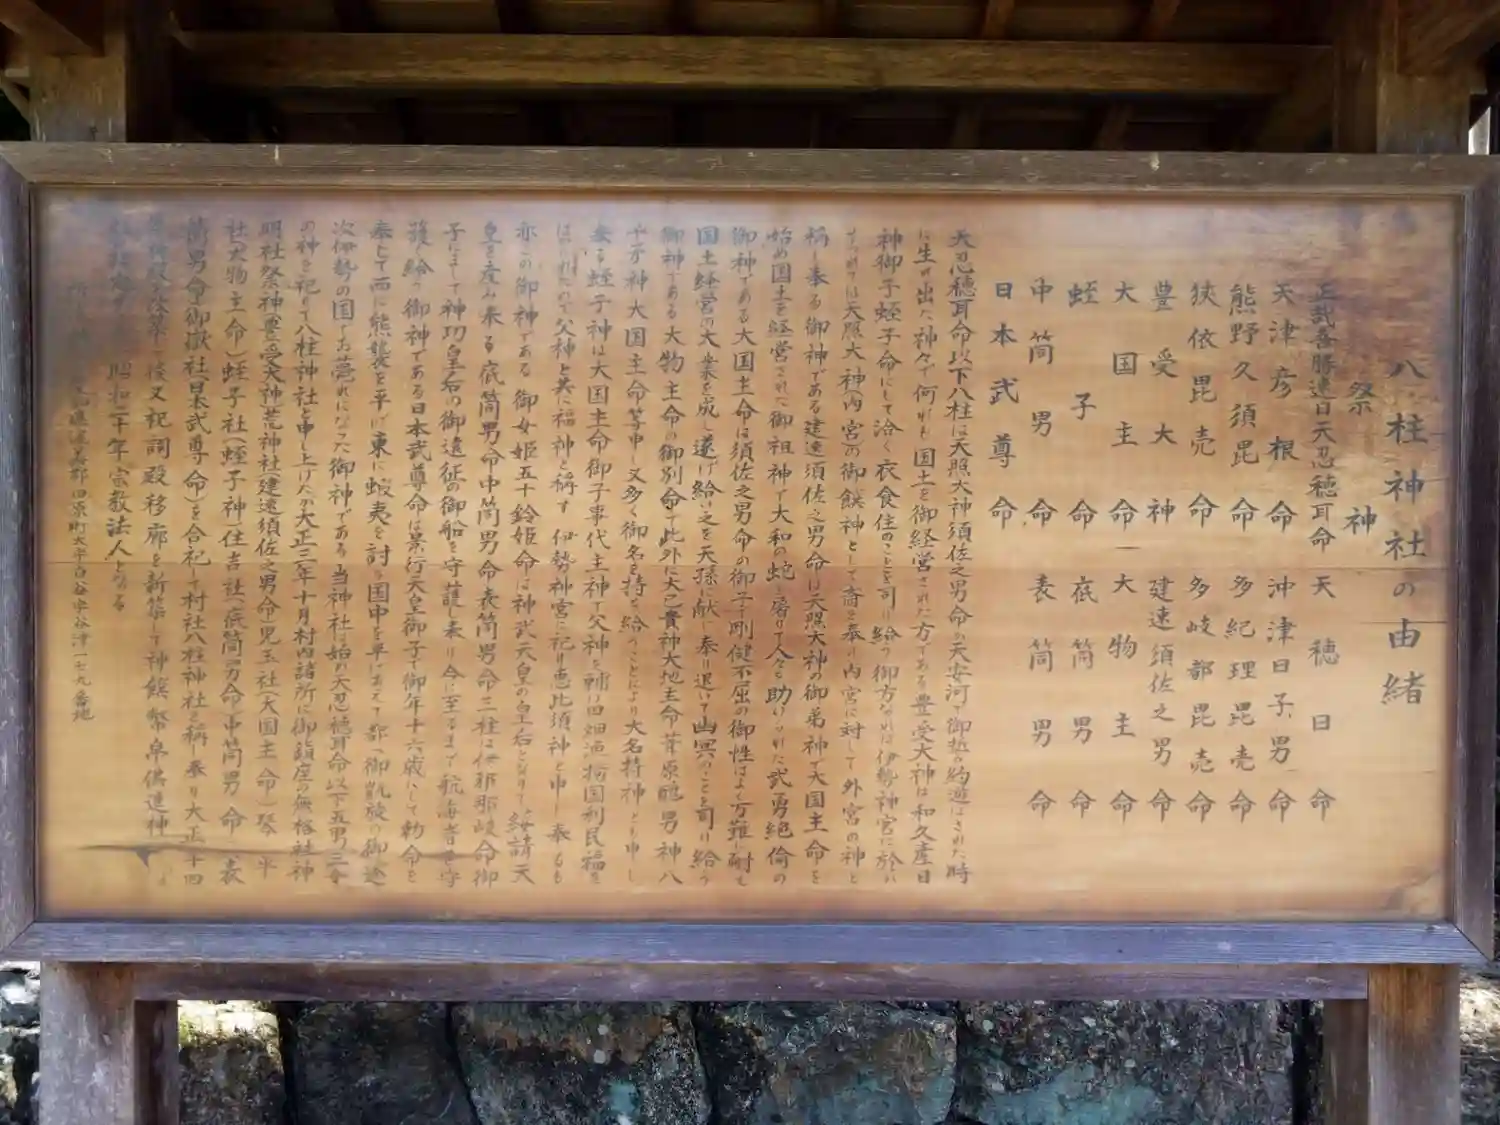 八柱神社の由緒
祭神
正哉吾勝速日天忍穂耳命 天穂日命
天津彦根命 沖津日子男命
熊野久須毘命 多紀理毘売命
狭依毘売命 多岐都毘売命
豊受大神 建速須佐之男命
大国主命 大物主命
蛭子命 底筒男命
中筒男命 表筒男命
日本武尊命
天忍穂耳命以下八柱は天照大神須佐之男命が天安河で御誓の約遊ばされた時
に生れ出た神々で何れも国土を御経営された方である豊受大神は和久産日
神御子蛭子命にして洽く衣食住のことを司り給う御方なれば伊勢神宮に於か
せられては天照大神(内宮)の御饌神として斎き奉り内宮に対して外宮の神と
称し奉る御神である建速須佐之男命は天照大神の御弟神で大国主命を
始め国土を経営された御祖神で大和の蛇を屠りて人々を助けられた武勇絶倫の
御神である大国主命は須佐之男命の御子で剛健不屈の御性はよく万難に耐え
国土経営の大業を成し遂げ給い之を天孫に献じ奉り退いて幽冥のことを司り給う
御神である大物主命の御別命で此外に大己貴神大地主命葦原醜男神八
千矛神大国主命等申し又多く御名を持ち給うことにより大名持神とも申し
奉る蛭子神は大国主命御子事代主神で父神を輔け田畑を拓き国利民福を
はかられたので父神と共に福神と称す 伊勢神宮に祀り恵比須神と申し奉るも
亦この御神である 御女姫五十鈴姫命は神武天皇の皇后となりて綏靖天
皇を産み奉る底筒男命中筒男命表筒男命三柱は伊邪那岐命御
子にして神功皇后の御遠征の御船を守護し奉り今に至るまで航海者を守
護し給う御神である日本武尊命は景行天皇御子で御年十六歳にして勅命を
奉じて西に熊襲を平げ東に蝦夷を討ち国中を平らげて都へ御凱旋の御途
次伊勢の国でお薨れになった御神である 当神社は始め天忍穂耳命以下五男三女
の神を祀りて八柱神社と申し上げたが大正三年十月村内諸所に御鎮座の無格社神
明社祭神(豊受大神)荒神社(建速須佐之男命)児玉社(大国主命)琴平
社(大物主命)蛭子社(蛭子神)住吉社(底筒男命)(中筒男命)(表
筒男命)御嶽社(日本武尊命)を合祀して村社八柱神社と称し奉り大正十四
後又祝詞殿移廊を新築して神饌幣帛供進神
昭和二十年宗教法人となる
渥美郡田原町大字白谷字谷津一七九番地